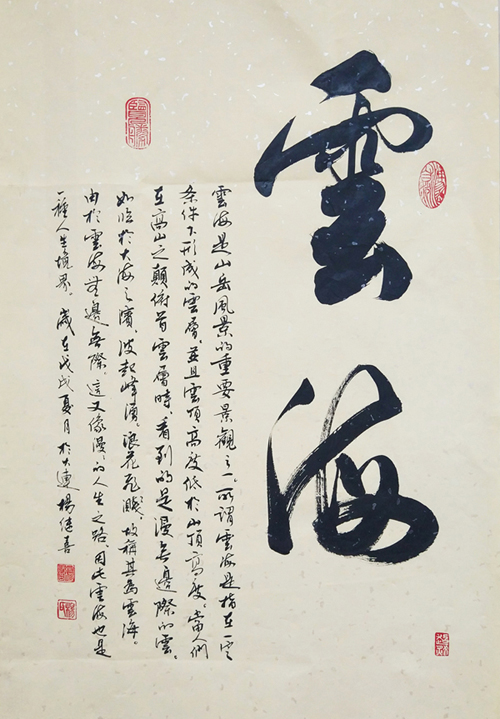 雲海
雲海是山岳風景的重要景觀之一,所謂雲海是指在一定
条件下形成的雲層,並且雲頂高度低於山頂高度。當人們
在高山之顛俯首雲層時,看到的是漫無邊際的雲,
如临於大海之濱,波起峰湧,浪花飛濺,故稱其為雲海。
由於雲海無邊無際,這又像漫々的人生之路,因此雲海也是
一種人生境界。歲在戊戌夏月於大連楊